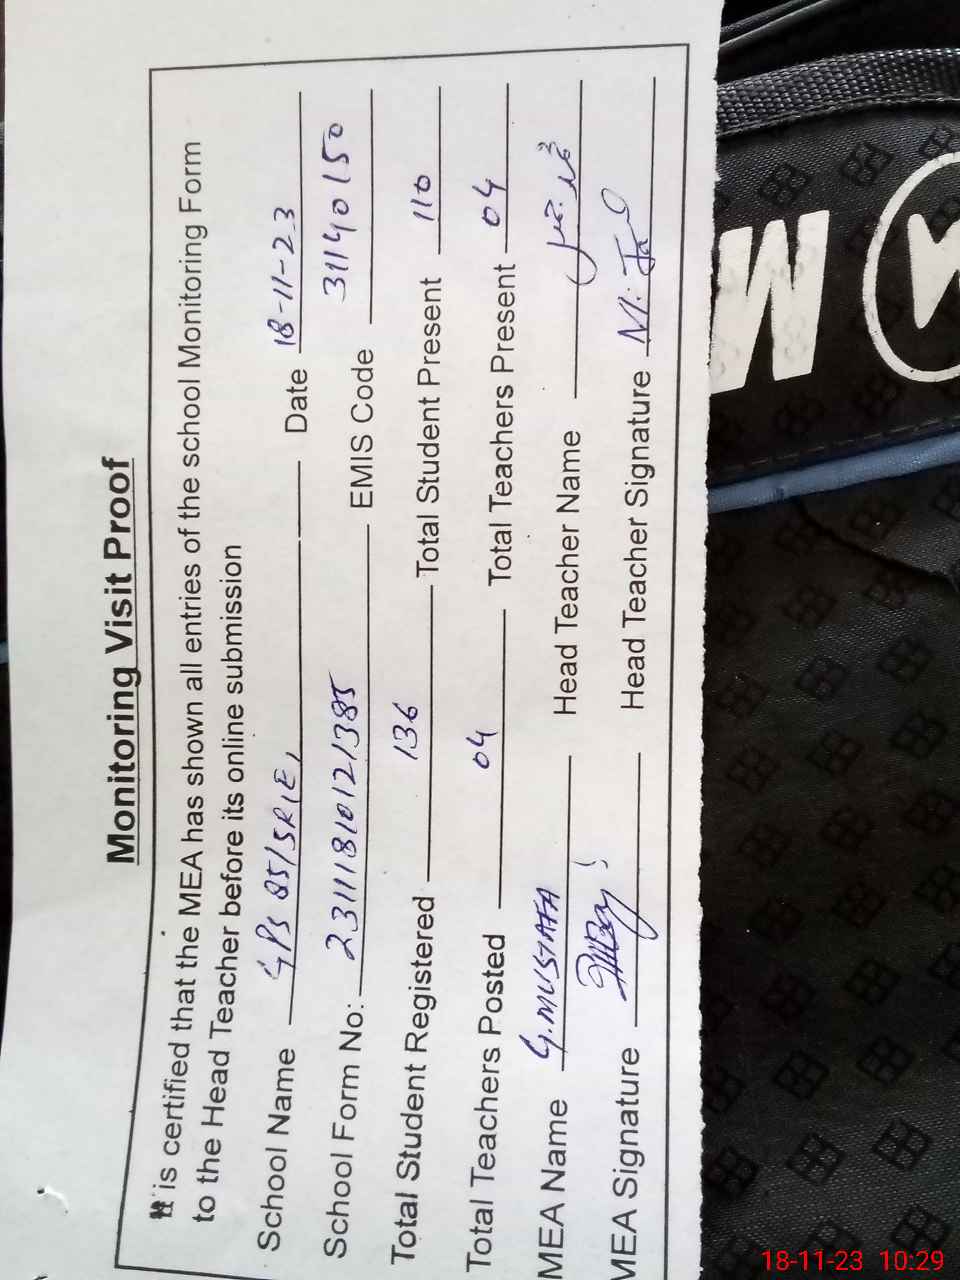 Monitoring Visit Proof
It is certified that the MEA has shown all entries of the school Monitoring Form
to the Head Teacher before its online submission
School Name GPS 85/5R1E, Date 18-11-23
School Form No: 23111810121385 EMIS Code 31140150
Total Student Registered 136 Total Student Present 110
Total Teachers Posted 04 Total Teachers Present 04
MEA Name G.MUSTAFA Head Teacher Name
MEA Signature Head Teacher Signature
W
18-11-23 10:29